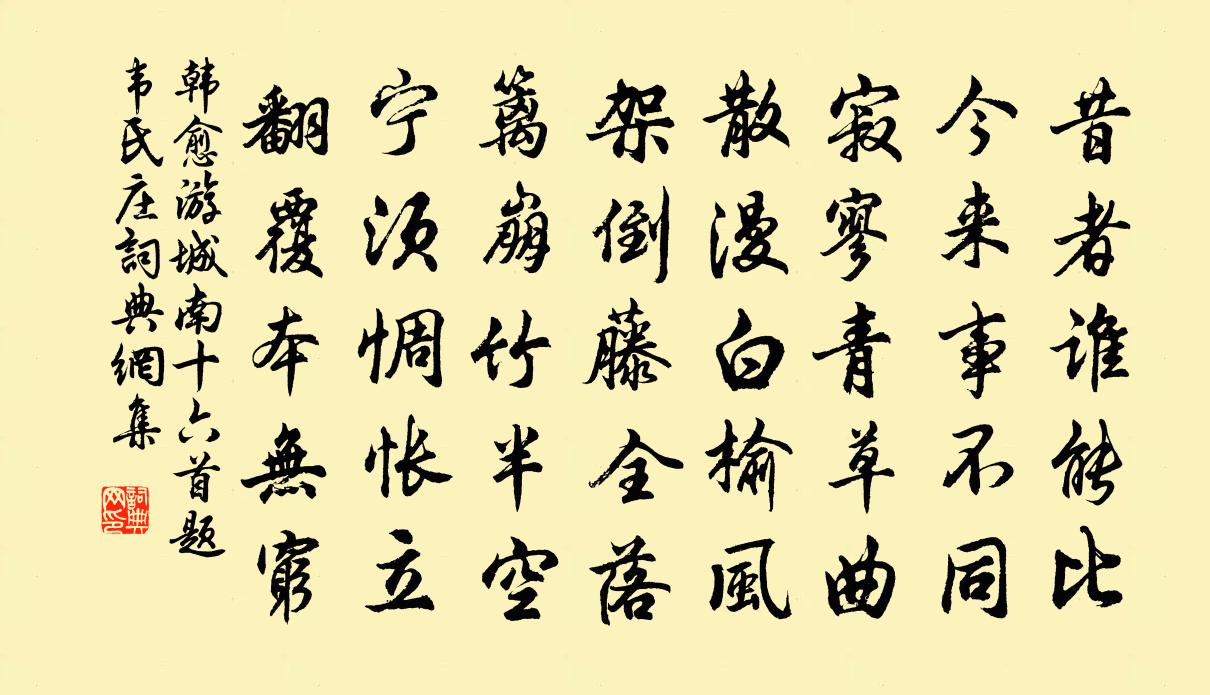 昔者谁能比
今来事不同
寂寥青草曲
散漫白榆風
架倒藤全落
篱崩竹半空
宁须惆怅立
翻覆本無窮
韩愈游城南十六首题
韦氏庄詞典網集
詞典
网印